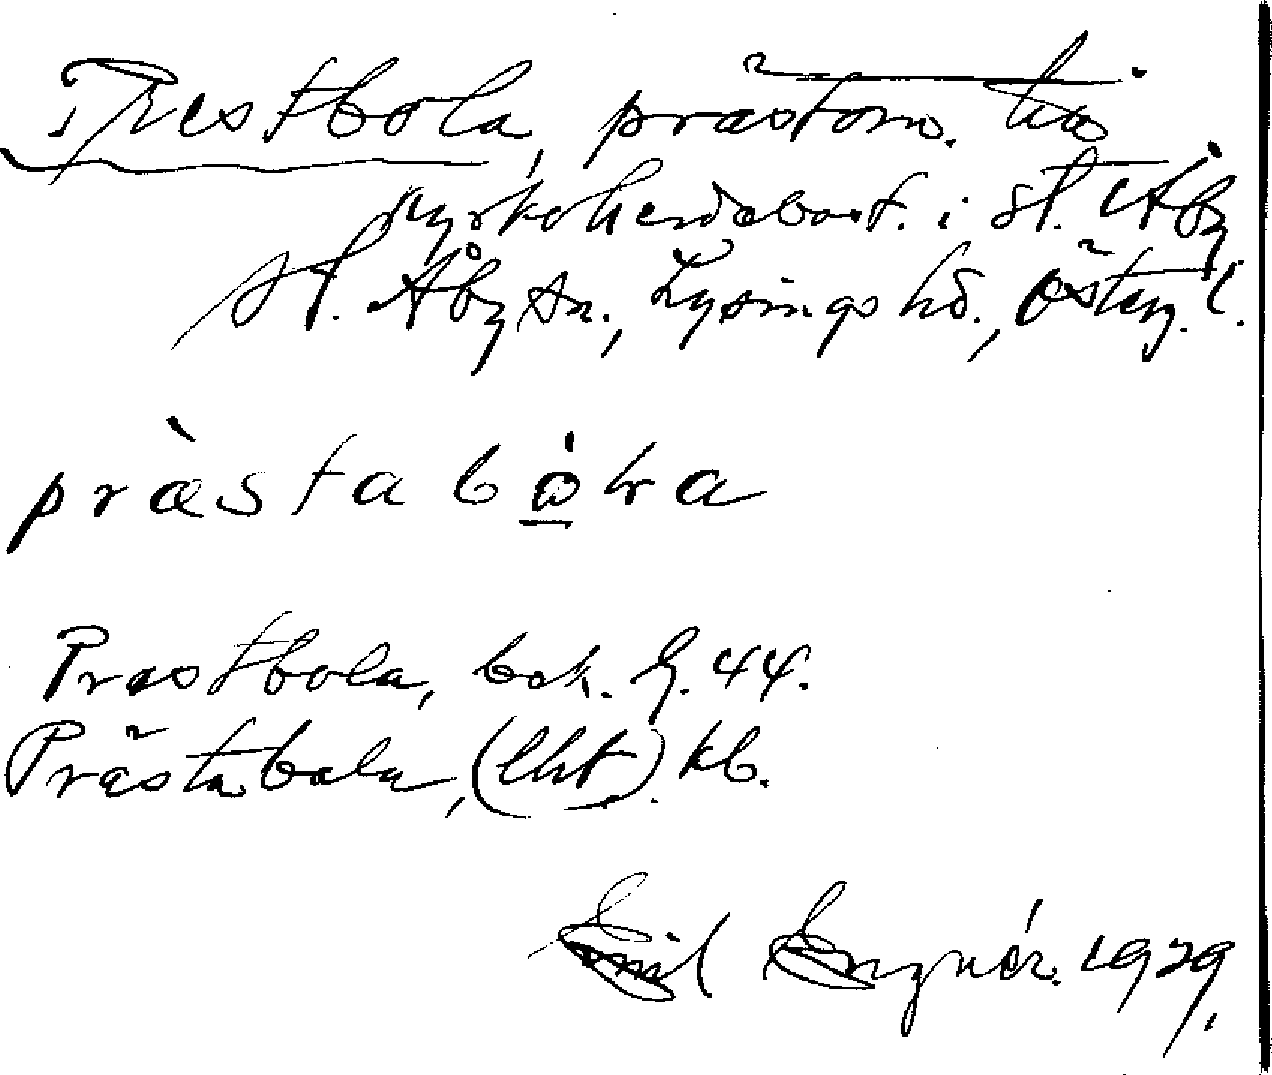 Prestbola, prästtorp. till
kyrkoherdebost. i St. Åby
St. Åby sn., Lysings hd., Österg. l.
præ̀stabo̱la
Prestbola, bek. G. 44.
Prästabola, (lht). kb.
Emil 1929.